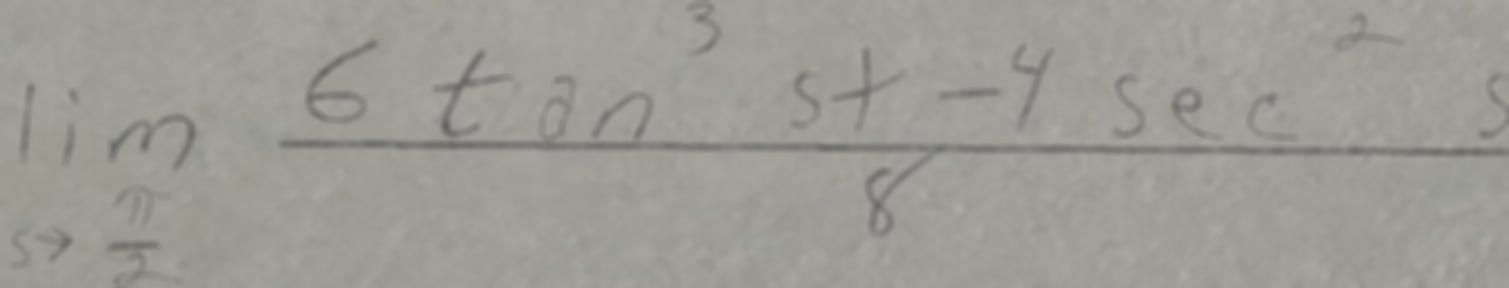 lim s→π/2 (6 tan³ st - 4 sec² s)/8